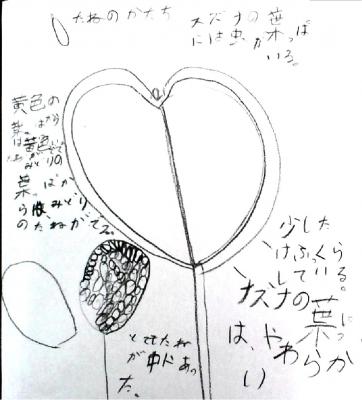 たねのかたち
ナズナの葉っぱ
には虫が
いる。
黄色の
葉っぱから
は黄色
みどりの
葉っぱか
ら みどり
のたねがでる。
少しだ
けふくら
ナズナの葉っぱ
は、やわらか
い
たね
が中に あっ
た。